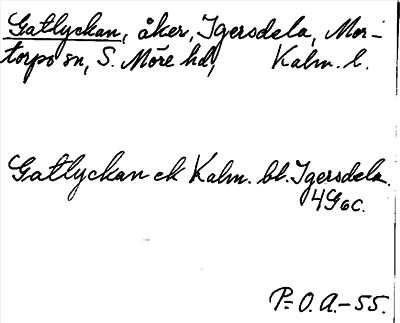 Gatlyckan, åker, Igersdela, Mor-
torps sn, S. Möre hd, Kalm. l.
Gatlyckan ek Kalm. bl. Igersdela.
4G6c.
P.O.A.-55.